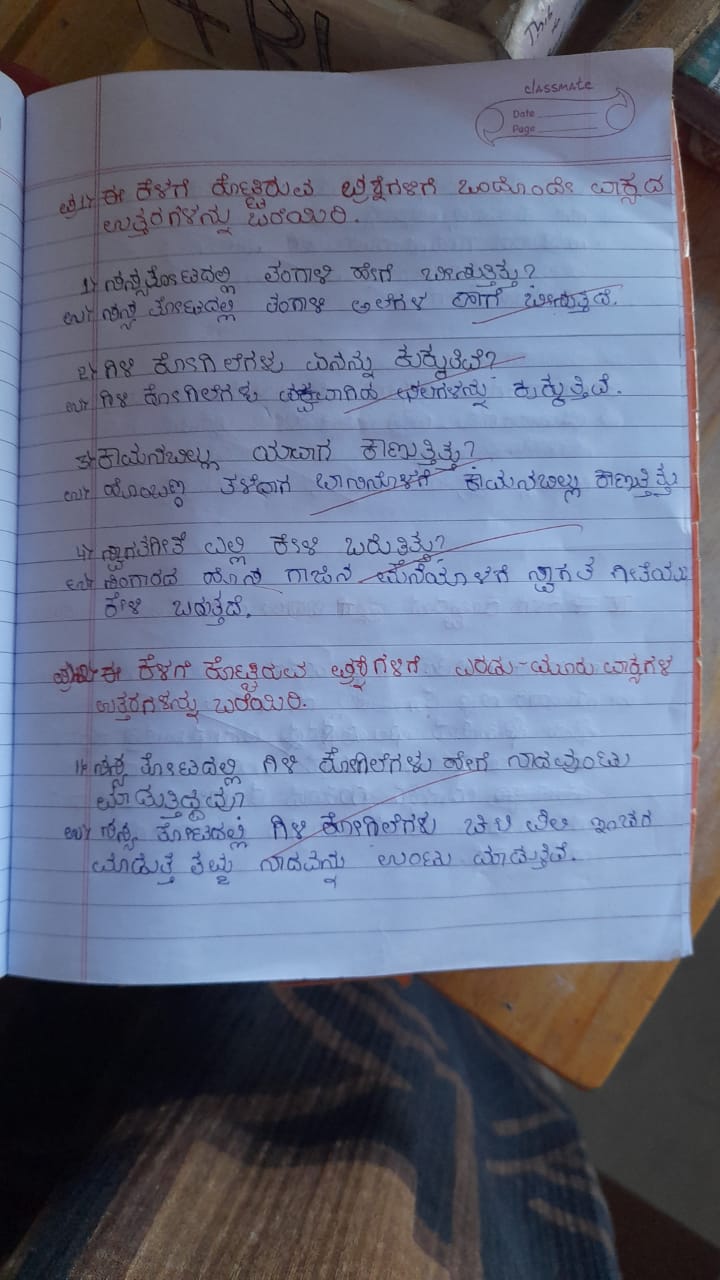 classmate
Date
Page
ಪ್ರ1) ಈ ಕೆಳಗೆ ಕೊಟ್ಟಿರುವ ಪ್ರಶ್ನೆಗಳಿಗೆ ಒಂದೊಂದೇ ವಾಕ್ಯದ
ಉತ್ತರಗಳನ್ನು ಬರೆಯಿರಿ.
1) ನನ್ನ ತೋಟದಲ್ಲಿ ತಂಗಾಳಿ ಹೇಗೆ ಬೀಸುತ್ತಿತ್ತು?
ಉ) ನನ್ನ ತೋಟದಲ್ಲಿ ತಂಗಾಳಿ ಅಲೆಗಳ ಹಾಗೆ ಬೀಸುತ್ತದೆ.
೭) ಗಿಳಿ ಕೋಗಿಲೆಗಳು ಏನನ್ನು ಕುಕ್ಕುತಿವೆ?
ಉ) ಗಿಳಿ ಕೋಗಿಲೆಗಳು ಪಕ್ವವಾಗಿಹ ಫಲಗಳನ್ನು ಕುಕ್ಕುತ್ತಿವೆ.
3) ಕಾಮನಬಿಲ್ಲು ಯಾವಾಗ ಕಾಣುತ್ತಿತ್ತು?
ಉ) ಹೊಂಬಣ್ಣ ತಳೆದಾಗ ಬಾನಿನೊಳಗೆ ಕಾಮನಬಿಲ್ಲು ಕಾಣುತ್ತಿತ್ತು
4) ಸ್ವಾಗತಗೀತೆ ಎಲ್ಲಿ ಕೇಳಿ ಬರುತಿತ್ತು?
ಉ) ಬಂಗಾರದ ಹೊಸ ಗಾಜಿನ ಮನೆಯೊಳಗೆ ಸ್ವಾಗತ ಗೀತೆಯು
ಕೇಳಿ ಬರುತ್ತದೆ.
ಪ್ರ2) ಈ ಕೆಳಗೆ ಕೊಟ್ಟಿರುವ ಪ್ರಶ್ನೆಗಳಿಗೆ ಎರಡು-ಮೂರು ವಾಕ್ಯಗಳ
ಉತ್ತರಗಳನ್ನು ಬರೆಯಿರಿ.
1) ನನ್ನ ತೋಟದಲ್ಲಿ ಗಿಳಿ ಕೋಗಿಲೆಗಳು ಹೇಗೆ ನಾದವುಂಟು
ಮಾಡುತ್ತಿದ್ದವು?
ಉ) ನನ್ನ ತೋಟದಲ್ಲಿ ಗಿಳಿ ಕೋಗಿಲೆಗಳು ಚಿಲಿ ಪಿಲಿ ಇಂಚರ
ಮಾಡುತ್ತ ನಾದವನ್ನು ಉಂಟು ಮಾಡುತ್ತಿವೆ.